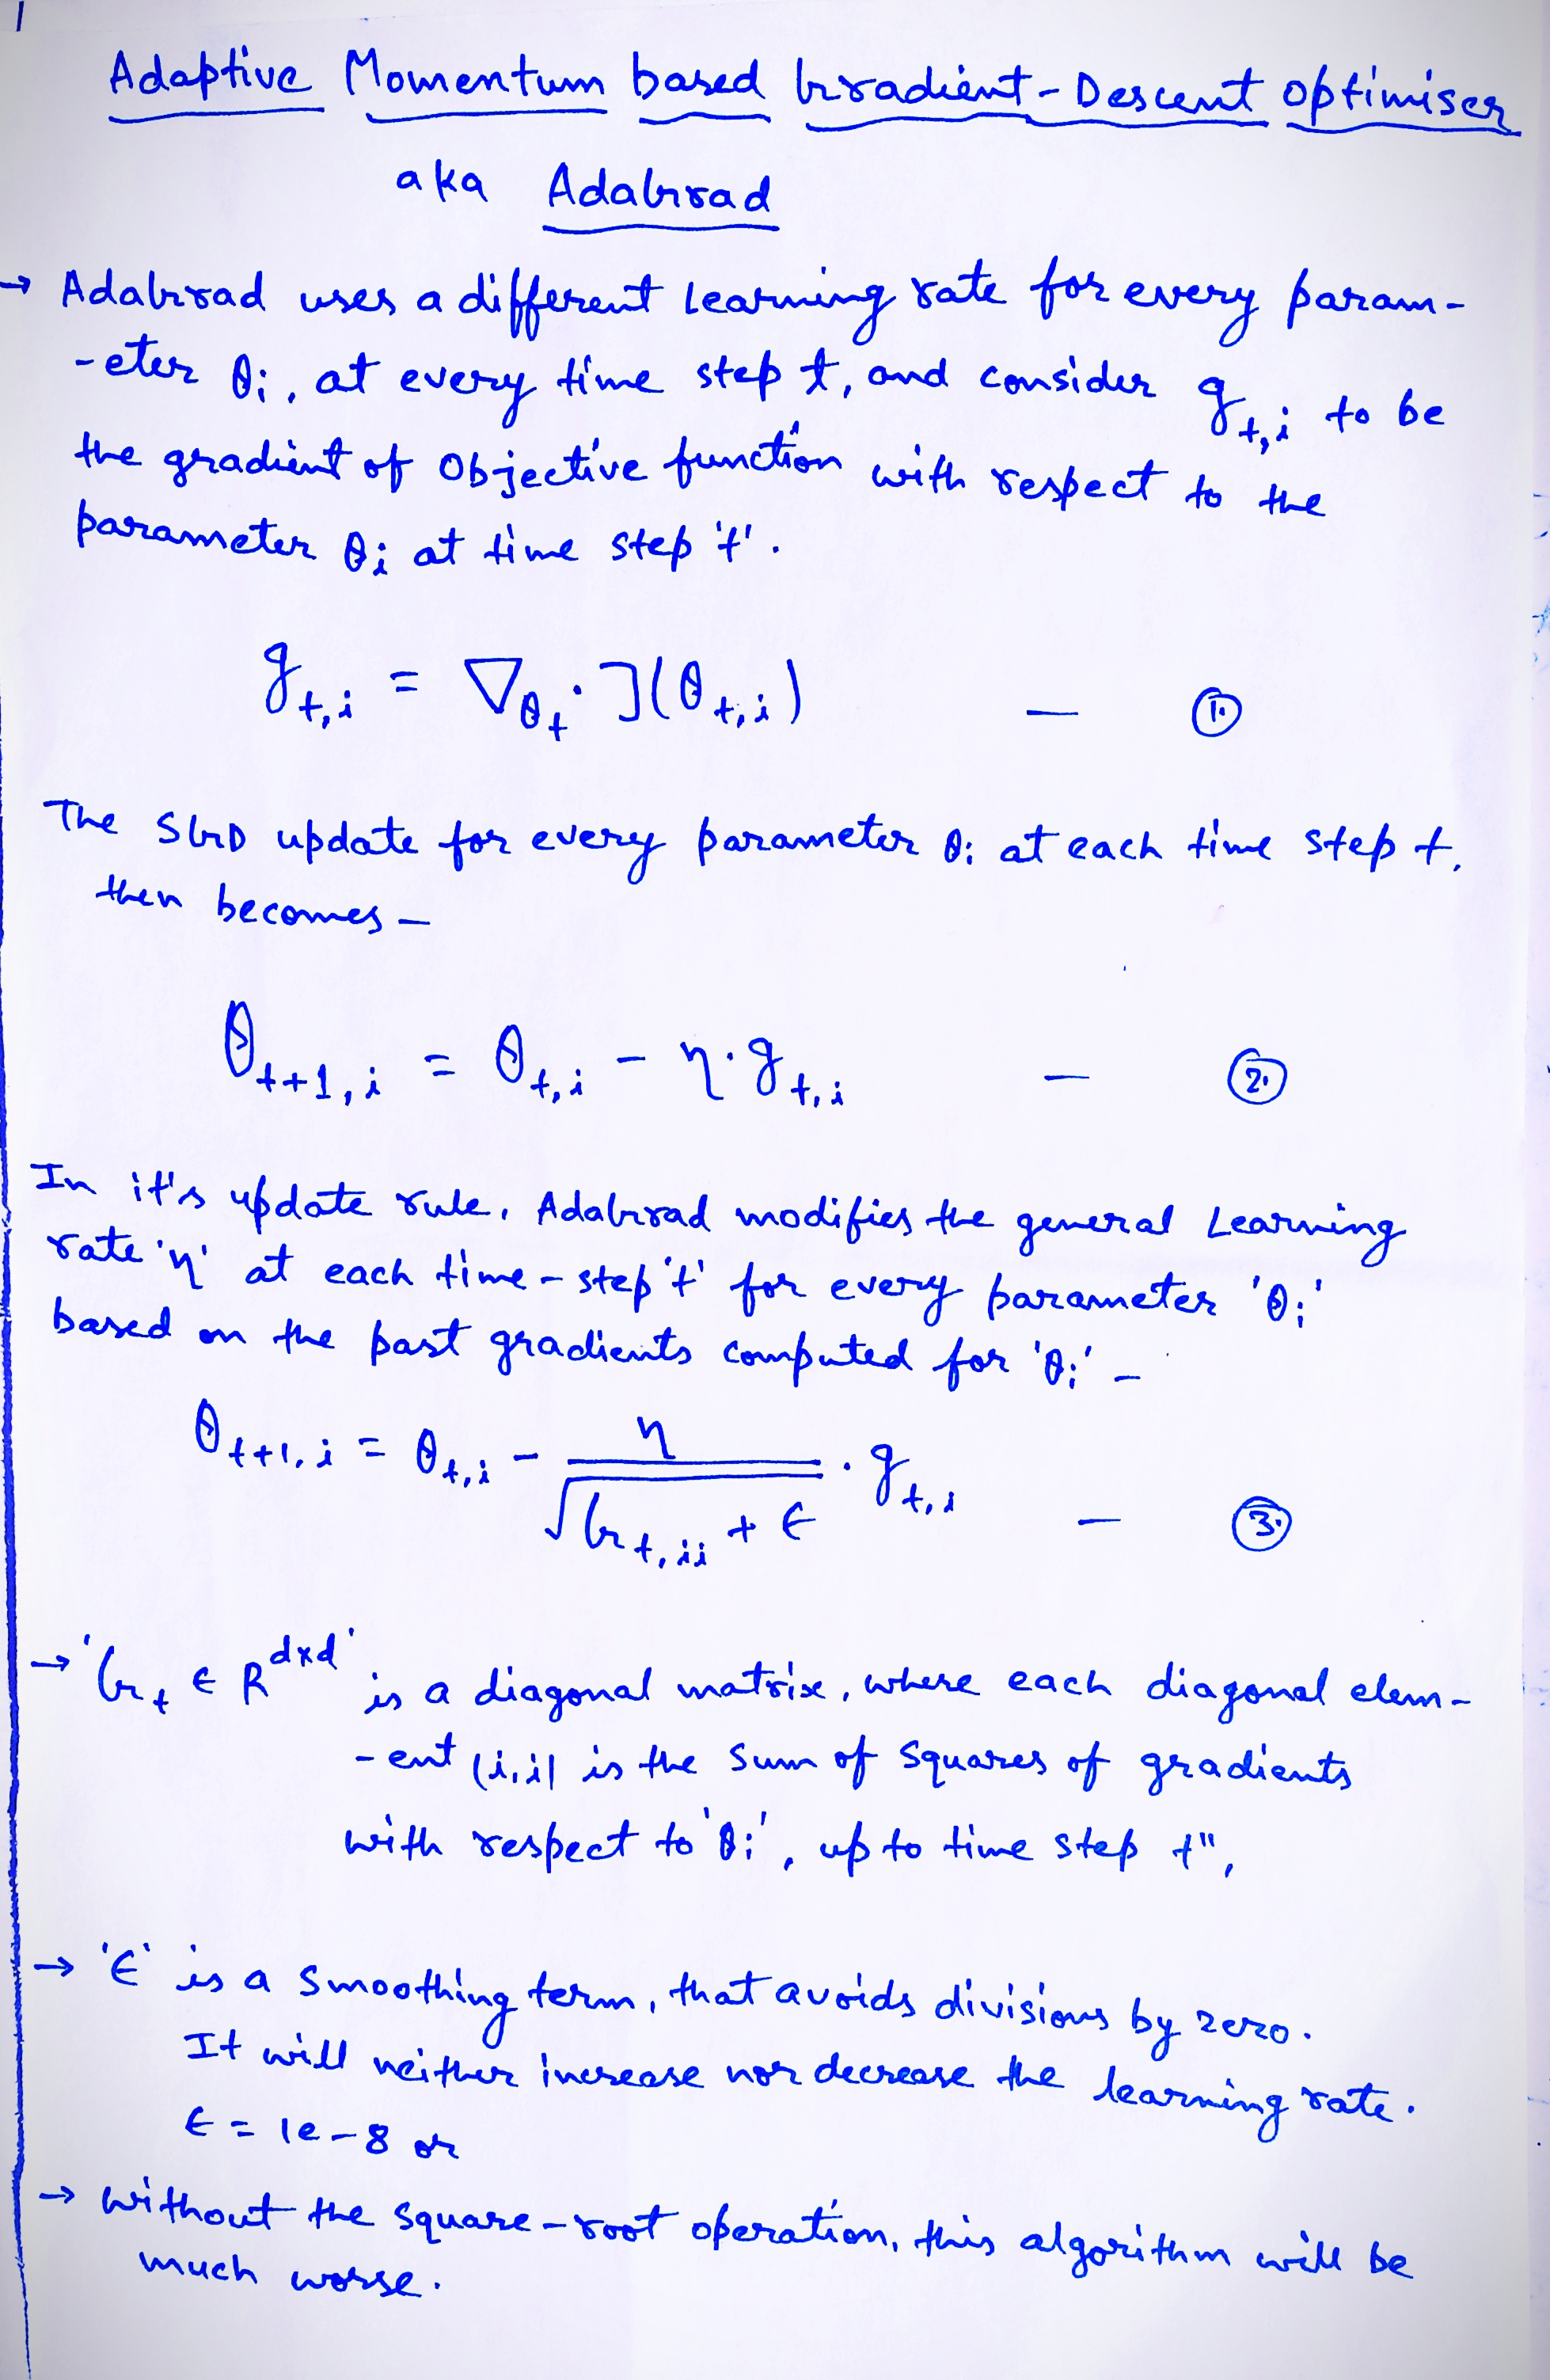 1
Adaptive Momentum based Gradient-Descent optimiser
aka AdaGrad
→ AdaGrad uses a different Learning rate for every param-
-eter θi, at every time step t, and consider g t,i to be
the gradient of Objective function with respect to the
parameter θi at time step 't'.
g t,i = ∇θt · J(θ t,i) — ①.
The SGD update for every parameter θi at each time step t,
then becomes —
θ t+1,i = θ t,i - η·g t,i — ②.
In it's update rule, AdaGrad modifies the general Learning
rate 'η' at each time-step 't' for every parameter 'θi'
based on the past gradients computed for 'θi' —
θ t+1,i = θ t,i - η / √(G t,ii + ϵ) · g t,i — ③.
→ 'Gt ϵ R^dxd' is a diagonal matrix, where each diagonal elem-
-ent (i,i) is the sum of squares of gradients
with respect to 'θi', up to time step t",
→ 'ϵ' is a smoothing term, that avoids divisions by zero.
It will neither increase nor decrease the learning rate.
ϵ = 1e-8 or
→ without the square-root operation, this algorithm will be
much worse.